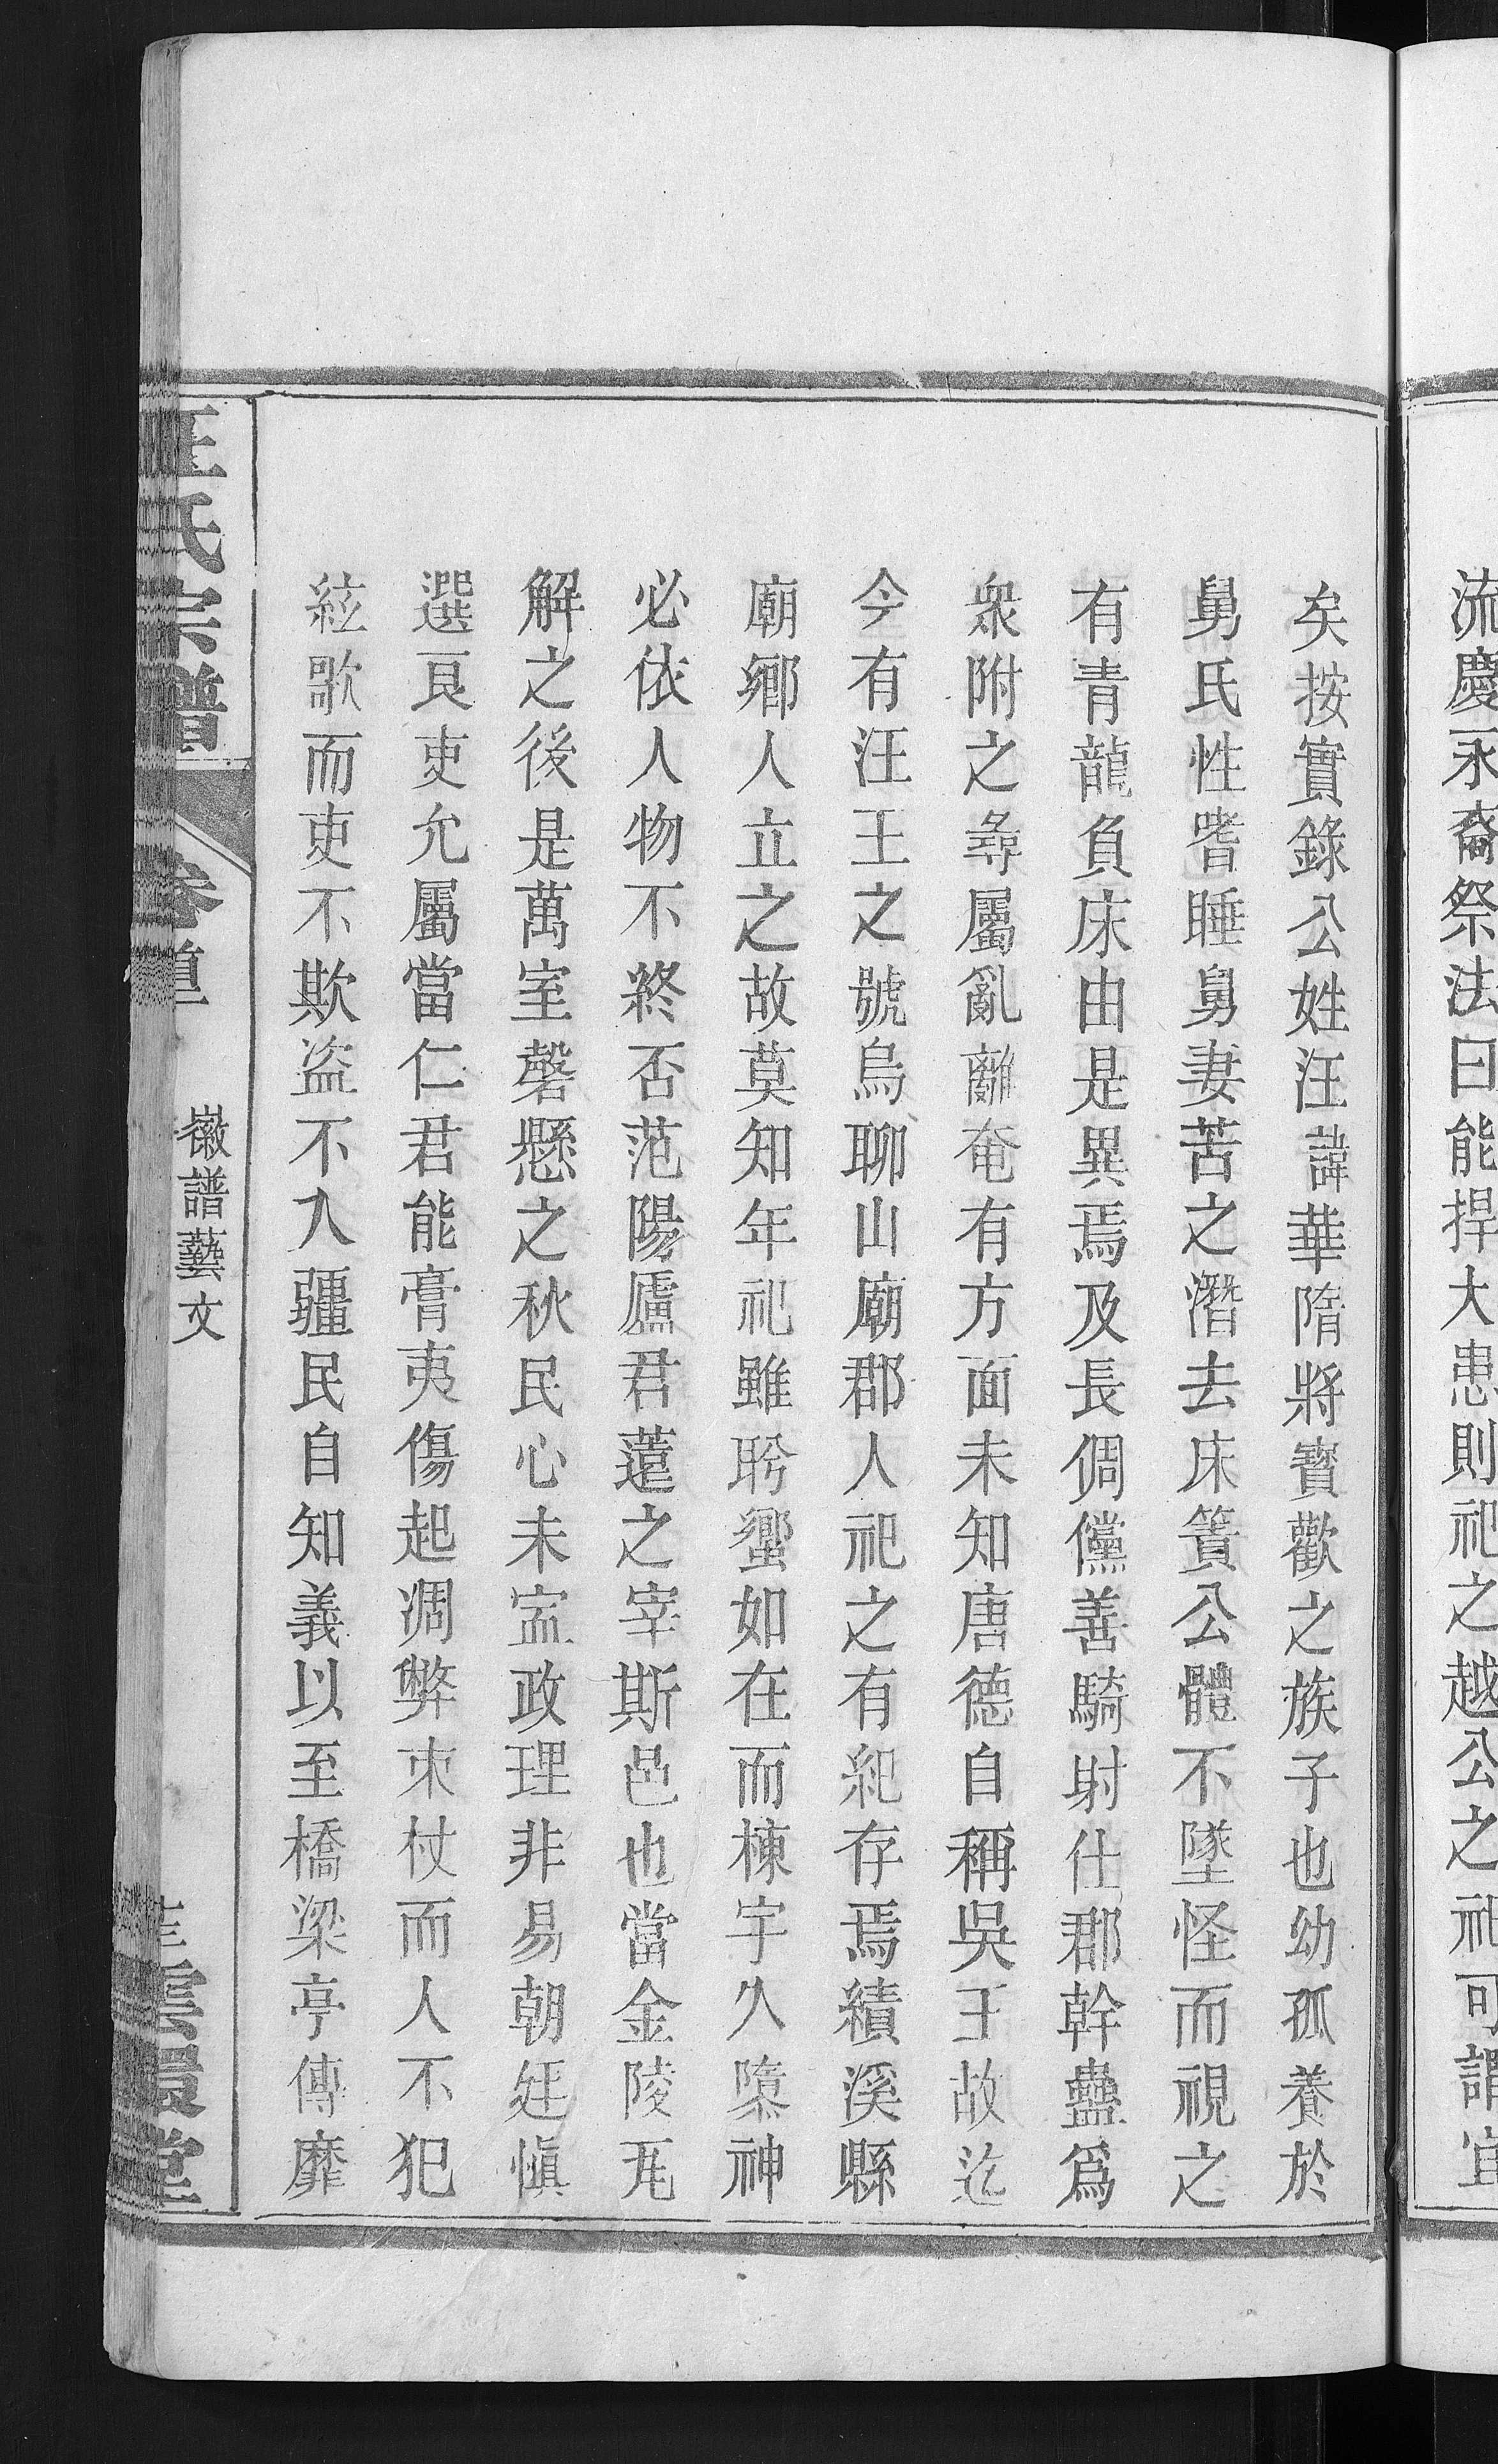 流慶永裔祭法曰能捍大患則祀之越公之祀可謂宜
矣按實錄公姓汪諱華隋將寶歡之族子也幼孤養於
舅氏性嗜睡舅妻苦之潛去床簀公體不墜怪而視之
有青龍負床由是異焉及長倜儻善騎射仕郡幹蠱爲
衆附之尋屬亂離奄有方面未知唐德自稱吳王故迄
今有汪王之號烏聊山廟郡人祀之有紀存焉績溪縣
廟鄉人立之故莫知年祀雖肹蠁如在而棟宇久隳神
必依人物不終否范陽盧君薳之宰斯邑也當金陵瓦
解之後是萬室磬懸之秋民心未寍政理非易朝廷愼
選良吏允屬當仁君能膏夷傷起凋弊朿杖而人不犯
絃歌而吏不欺盜不入疆民自知義以至橋梁亭傳靡
汪氏宗譜 卷首 徽譜藝文 雲環堂